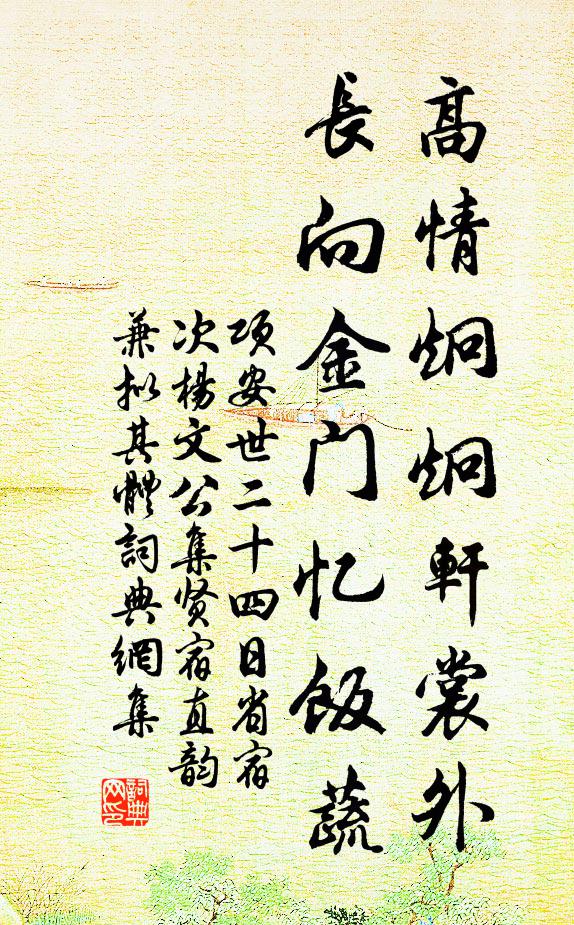 高情炯炯軒裳外
長向金门忆飯蔬
项安世二十四日省宿
次楊文公集贤宿直韵
兼拟其體詞典網集
詞典网印